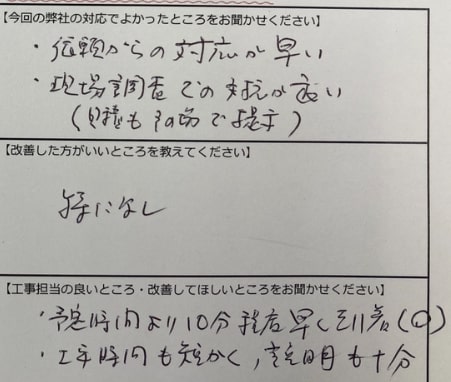 【今回の弊社の対応でよかったところをお聞かせください】
・依頼からの対応が早い
・現場調査での対応が速い
(見積もその場で提示)
【改善した方がいいところを教えてください】
特になし
【工事担当の良いところ・改善してほしいところをお聞かせください】
・予定時間より10分程度早く到着(〇)
・工事時間も短かく,説明も十分